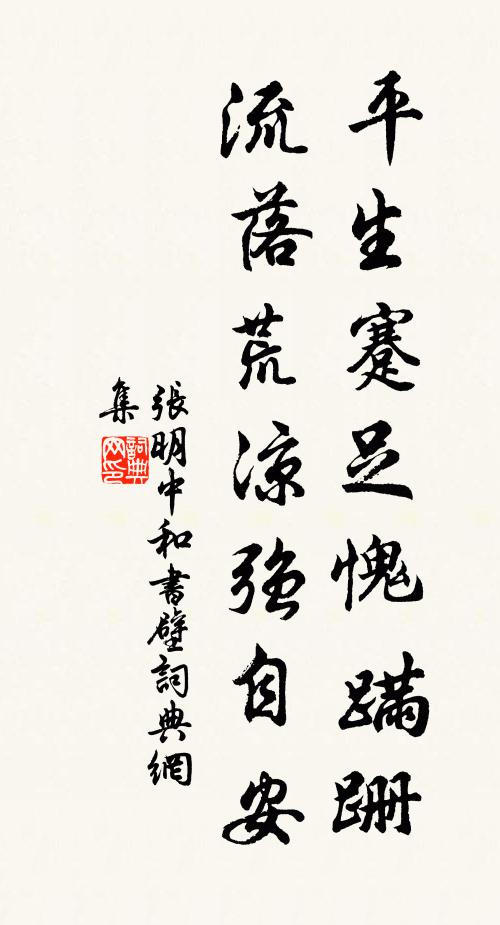 平生蹇足愧蹣跚
流落荒涼強自安
張明中和書壁詞典網
集
詞典网印